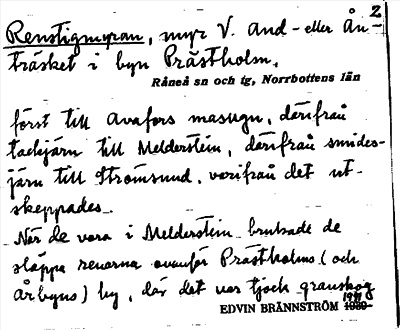 2
Renstigmyran, myr V. And- eller Ån-
träsket i byn Prästholm,
Råneå sn och tg, Norrbottens län
först till Avafors masugn, därifrån
tackjärn till Melderstein, därifrån smides-
järn till Strömsund, varifrån det ut-
skeppades.
När de vara i Melderstein brukade de
släppa renarna ovanför Prästholms (och
Årbyns) by, där det var tjock granskog
EDVIN BRÄNNSTRÖM 1939